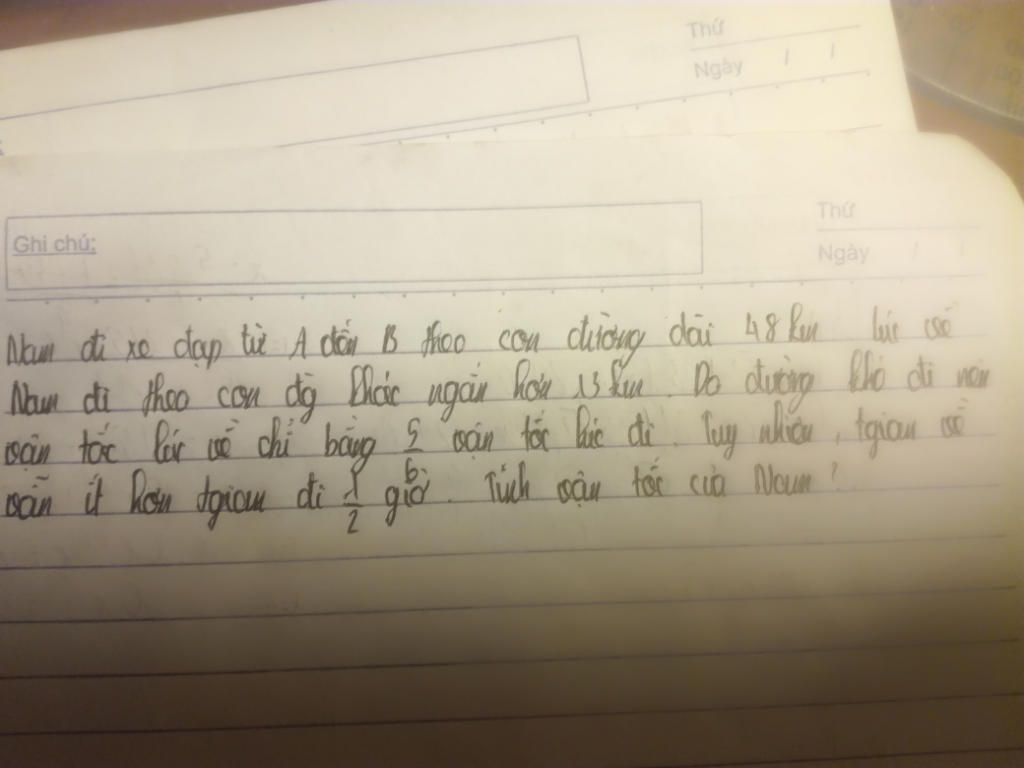 Thứ
Ngày / /
Ghi chú:
Thứ
Ngày / /
Nam đi xe đạp từ A đến B theo con đường dài 48 km lúc về
Nam đi theo con đg khác ngắn hơn 13 km. Do đường khó đi nên
vận tốc lúc về chỉ bằng 5/6 vận tốc lúc đi. Tuy nhiên, tgian về
vẫn ít hơn tgian đi 1/2 giờ. Tính vận tốc của Nam?